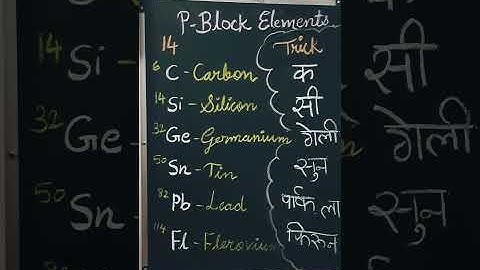 P-Block Elements
14 Trick
6 C - Carbon क
14 Si - Silicon सी
32 Ge - Germanium गेली
50 Sn - Tin सुन
82 Pb - Lead पार्क ला
114 Fl - Flerovium फिरून